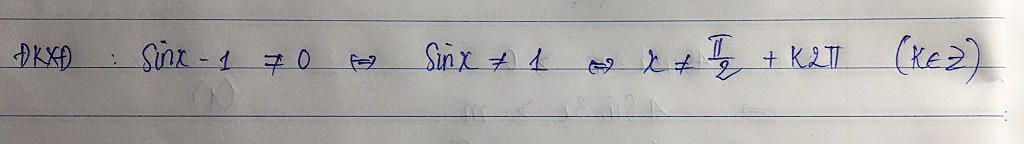 ĐKXĐ : Sinx - 1 ≠ 0 ⇔ Sinx ≠ 1 ⇔ x ≠ π/2 + K2π (K∈Z)